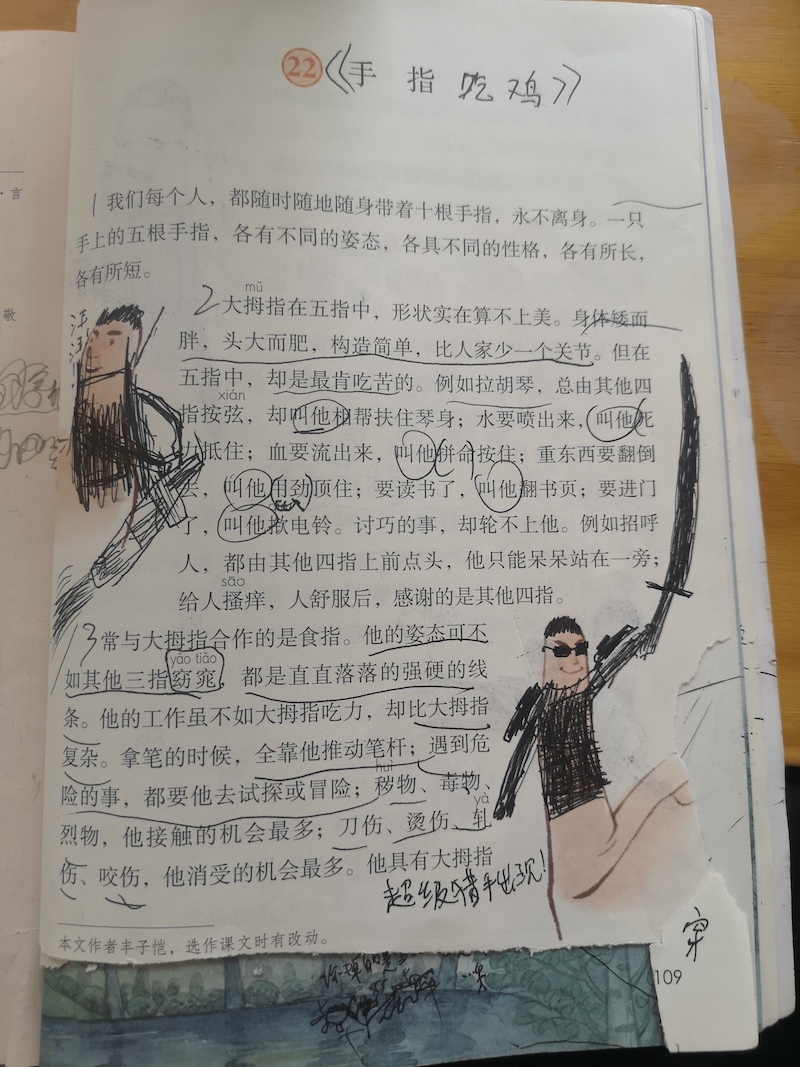 22《手指吃鸡》
1我们每个人，都随时随地随身带着十根手指，永不离身。一只
手上的五根手指，各有不同的姿态，各具不同的性格，各有所长，
各有所短。
mǔ
2大拇指在五指中，形状实在算不上美。身体矮而
胖，头大而肥，构造简单，比人家少一个关节。但在
五指中，却是最肯吃苦的。例如拉胡琴，总由其他四
xián
指按弦，却叫他相帮扶住琴身；水要喷出来，叫他死
力抵住；血要流出来，叫他拼命按住；重东西要翻倒
去，叫他用劲顶住；要读书了，叫他翻书页；要进门
了，叫他揿电铃。讨巧的事，却轮不上他。例如招呼
人，都由其他四指上前点头，他只能呆呆站在一旁；
sāo
给人搔痒，人舒服后，感谢的是其他四指。
3常与大拇指合作的是食指。他的姿态可不
yǎo tiǎo
如其他三指窈窕，都是直直落落的强硬的线
条。他的工作虽不如大拇指吃力，却比大拇指
复杂。拿笔的时候，全靠他推动笔杆；遇到危
huì
险的事，都要他去试探或冒险；秽物、毒物、
yà
烈物，他接触的机会最多；刀伤、烫伤、轧
伤、咬伤，他消受的机会最多。他具有大拇指
超级猎手出现！
本文作者丰子恺，选作课文时有改动。
109
言
敬